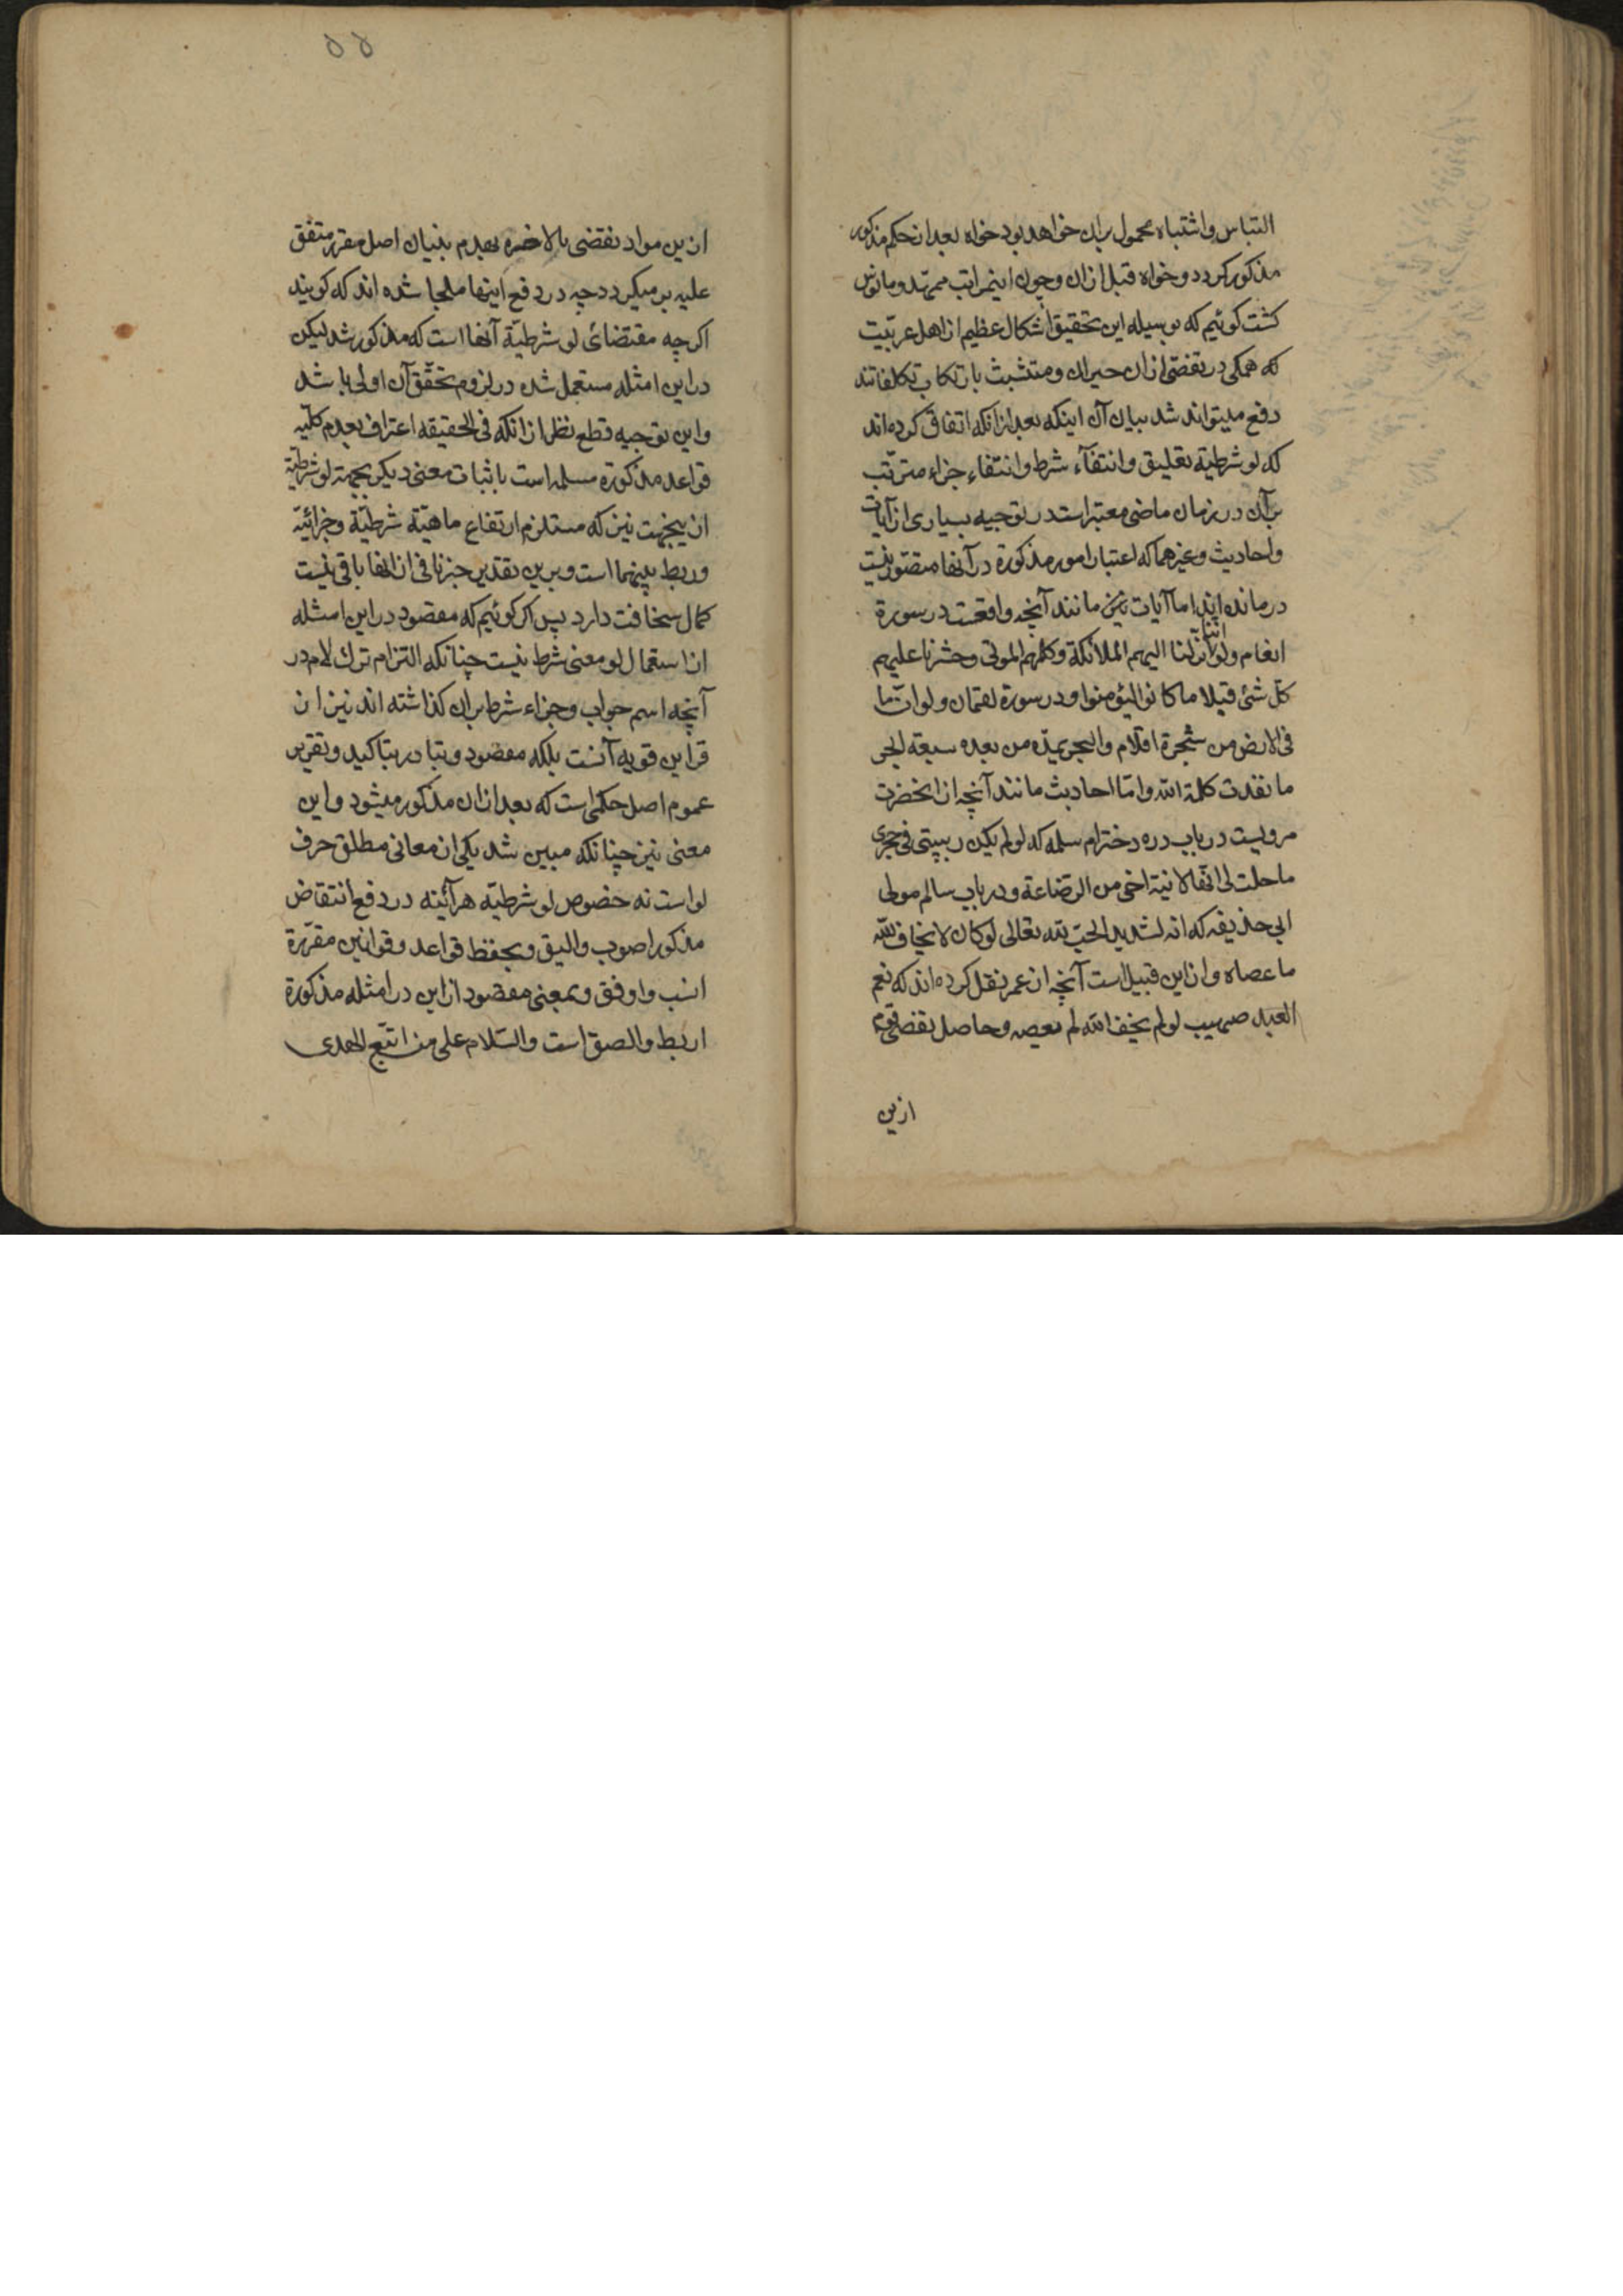 التباس و اشتباه محمول بران خواهد بود خواه بعد از حکم مذکور
مذکور کردد و خواه قبل ازان و چون اینمراتب ممهّد و مانوس
کشت کوئیم که بوسیله این تحقیق اشکال عظیم از اهل عربیّت
که همکی در تفصّی ازان حیران و متشبث بارتکاب تکلفاتند
دفع میتواند شد بیان آن اینکه بعد ازانکه اتفاق کرده اند
که لو شرطیة تعلیق و انتفآء شرط و انتفاء جزاء مترتب
برآن در زمان ماضی معتبر است در توجیه بسیاری از آیات
و احادیث و غیرهما که اعتبار امور مذکورة در آنها متصّور نیست
درمانده اند اما آیات پس مانند آنچه واقعست در سورة
انعام ولو اننا نزّلنا الیهم الملائکة وکلمهم الموتی وحشرنا علیهم
کلّ شئ قبلا ما کانوا لیؤمنوا و در سورة لقمان ولو انّ ما
فی الارض من شجرة اقلام والبحر یمدّه من بعده سبعة ابحر
ما نفدت کلمة الله و امّا احادیث مانند آنچه از انحضرت
مرویست در باب دره دختر ام سلمه که لو لم یکن ربیبتی فی حجری
ما حلت لی انّها لابنة اخی من الرّضاعة و در باب سالم مولی
ابی حذیفه که انه لشدید الحبّ لله تعالی لو کان لا یخاف لله
ما عصاه و از این قبیل است آنچه از عمر نقل کرده اند که نعم
العبد صهیب لو لم یخف الله لم یعصه و حاصل نقض قوم
ازین
۵۵
ازین مواد نقضی بالاخره بهدم بنیان اصل مقرر متفق
علیه بر میکردد چه در دفع اینها ملجا شده اند که کویند
اکرچه مقتضای لو شرطیّة آنها است که مذکور شد لیکن
در این امثله مستعمل شده در لزوم تحقّق آن اولی باشد
و این توجیه قطع نظر ازانکه فی الحقیقه اعتراف بعدم کلّیه
قواعد مذکورة مسلمه است باثبات معنی دیکر بجهة لو شرطیّة
از یجهت نیز که مستلزم ارتفاع ماهیّة شرطیّة و جزائیّة
و ربط بینهما است و برین تقدیر جزنافی از انها باقی نیست
کمال سخافت دارد پس اکر کوئیم که مقصود در این امثله
از استعمال لو معنی شرط نیست چنانکه التزام ترك لام در
آنچه اسم جواب و جزاء شرط بران کذاشته اند نیز از
قراین قویه آنست بلکه مقصود و متبادر تاکید و تقریر
عموم اصل حکمی است که بعد ازان مذکور میشود و این
معنی نیز چنانکه مبین شد یکی از معانی مطلق حرف
لو است نه خصوص لو شرطیّه هرآئینه در دفع انتقاض
مذکور اصوب و الیق و بحفظ قواعد و قوانین مقرّرة
انسب و اوفق و بمعنی مقصود از این در امثله مذکورة
اربط و الصق است والسّلام علی من اتّبع الهدی